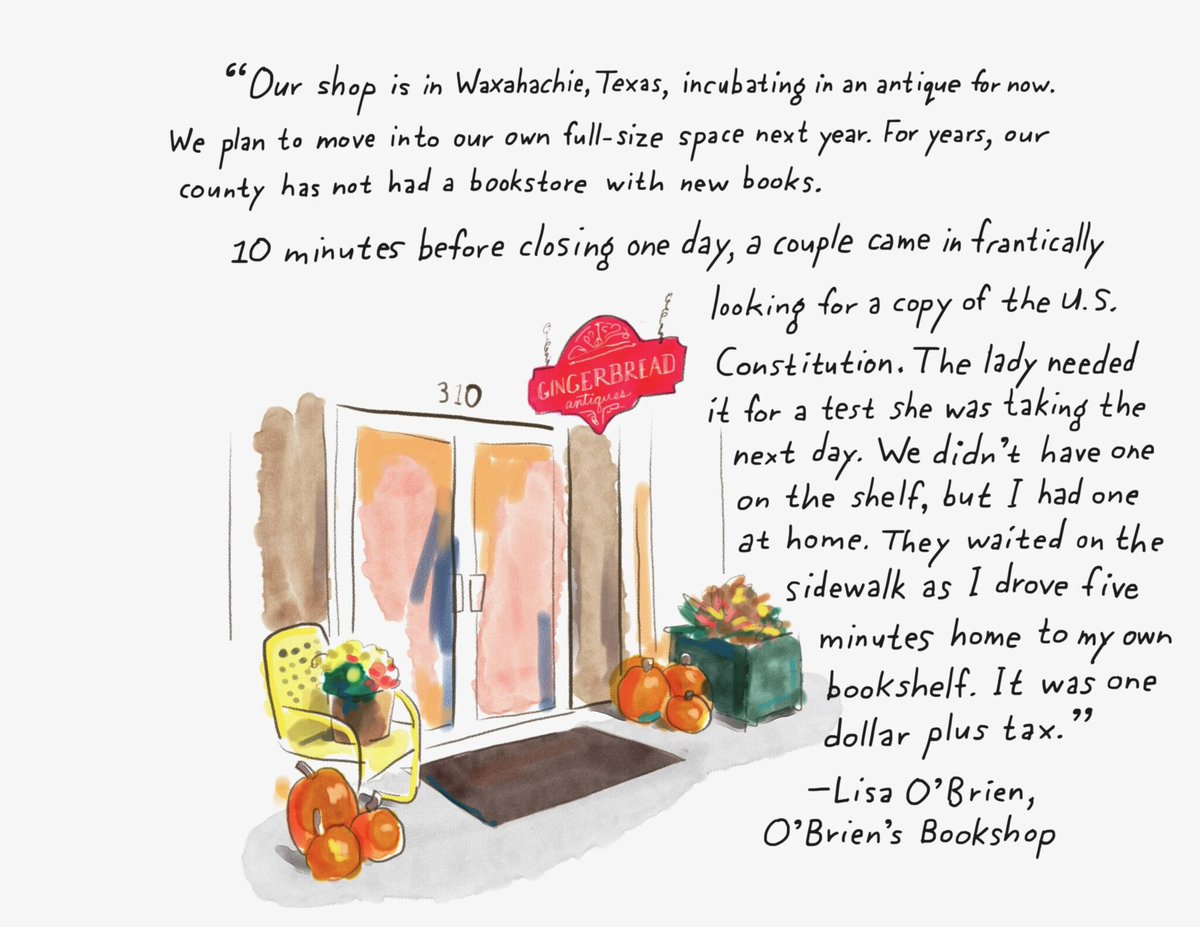 “Our shop is in Waxahachie, Texas, incubating in an antique for now.
We plan to move into our own full-size space next year. For years, our
county has not had a bookstore with new books.
10 minutes before closing one day, a couple came in frantically
looking for a copy of the U.S.
Constitution. The lady needed
it for a test she was taking the
next day. We didn’t have one
on the shelf, but I had one
at home. They waited on the
sidewalk as I drove five
minutes home to my own
bookshelf. It was one
dollar plus tax.”
—Lisa O’Brien,
O’Brien’s Bookshop
310
GINGERBREAD
antiques